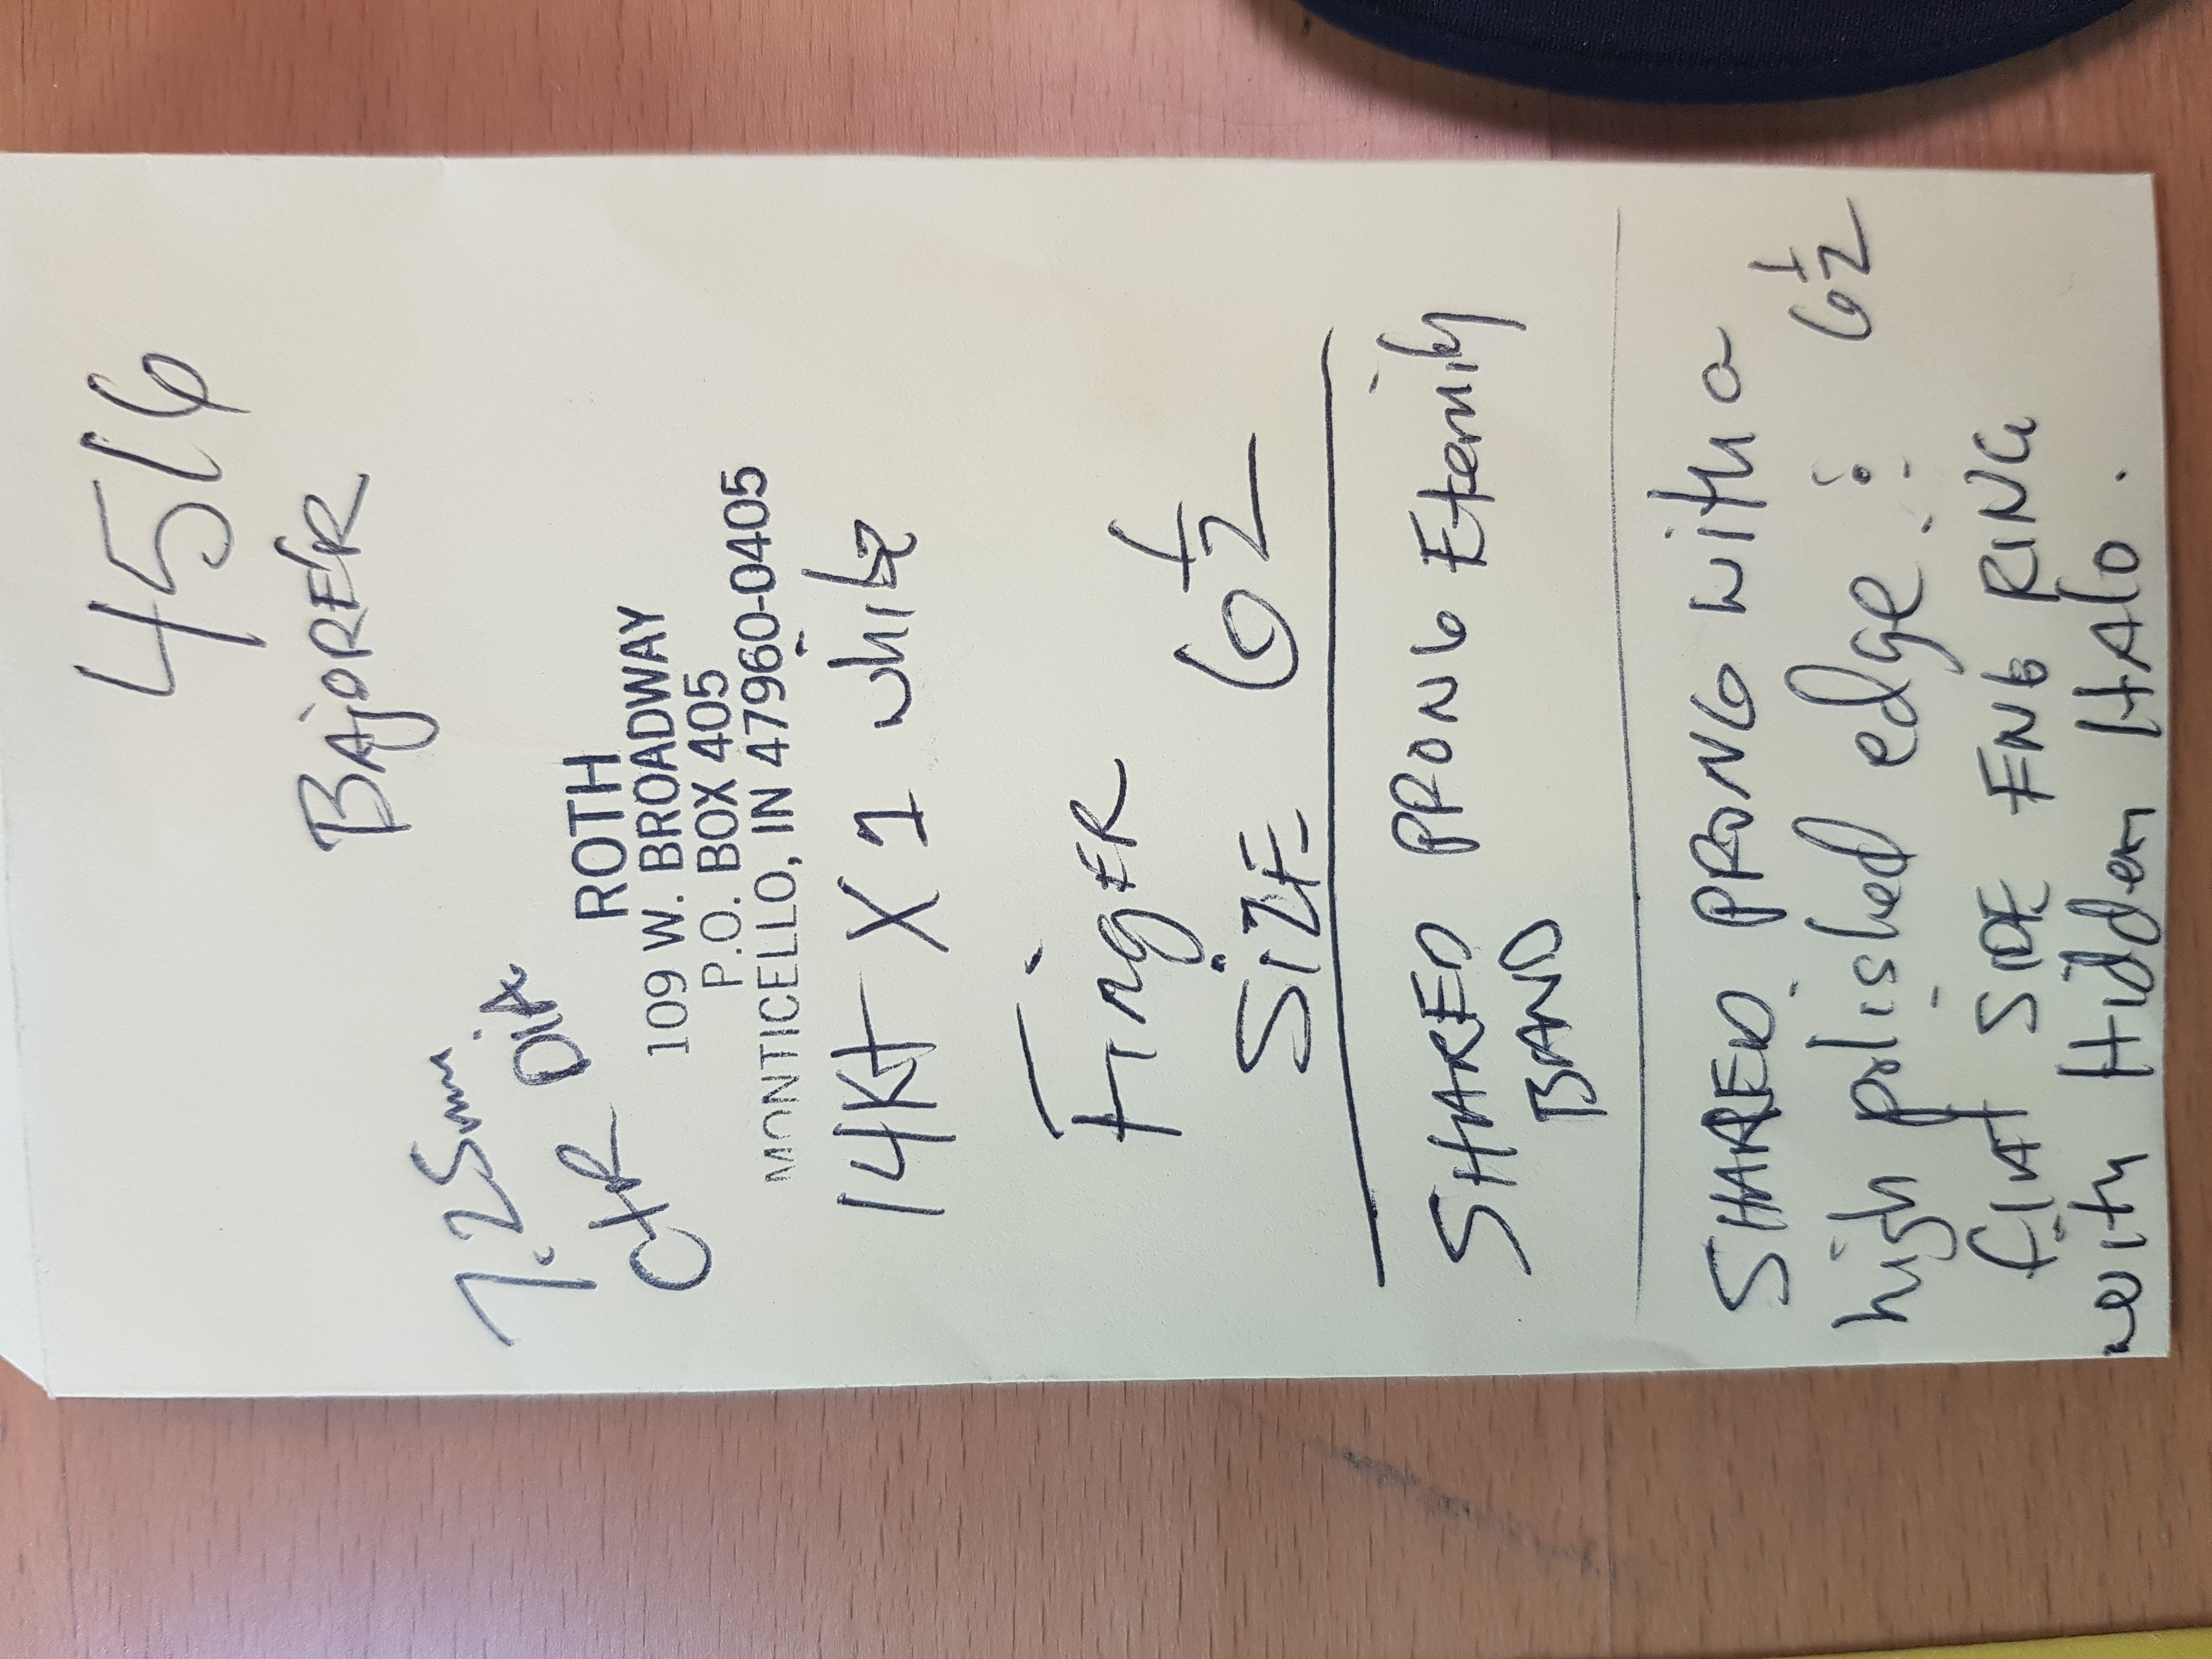 4516
BAjORER
7.25mm
CtR DIA
ROTH
109 W. BROADWAY
P.O. BOX 405
MONTICELLO, IN 47960-0405
14Kt X 1 white
FingER
SiZE 6 1/2
SHARED PRONG Eternity
BAND
SHARED PRONG with a
high polished edge. : 6 1/2
flAt SIDE ENG RING
with Hidden HAlo.